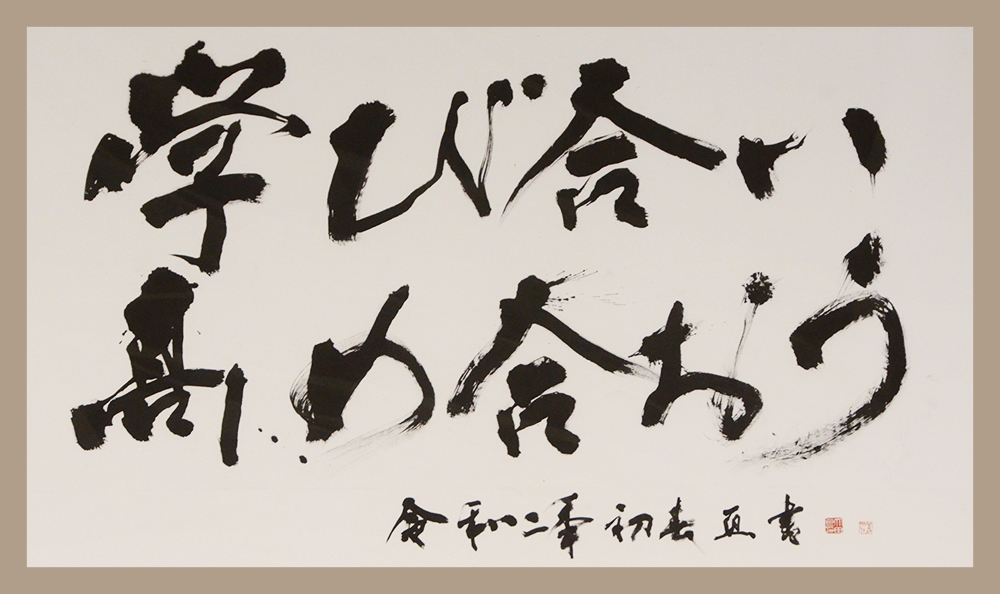 学び合い
高め合おう
令和二年 初春 亙書